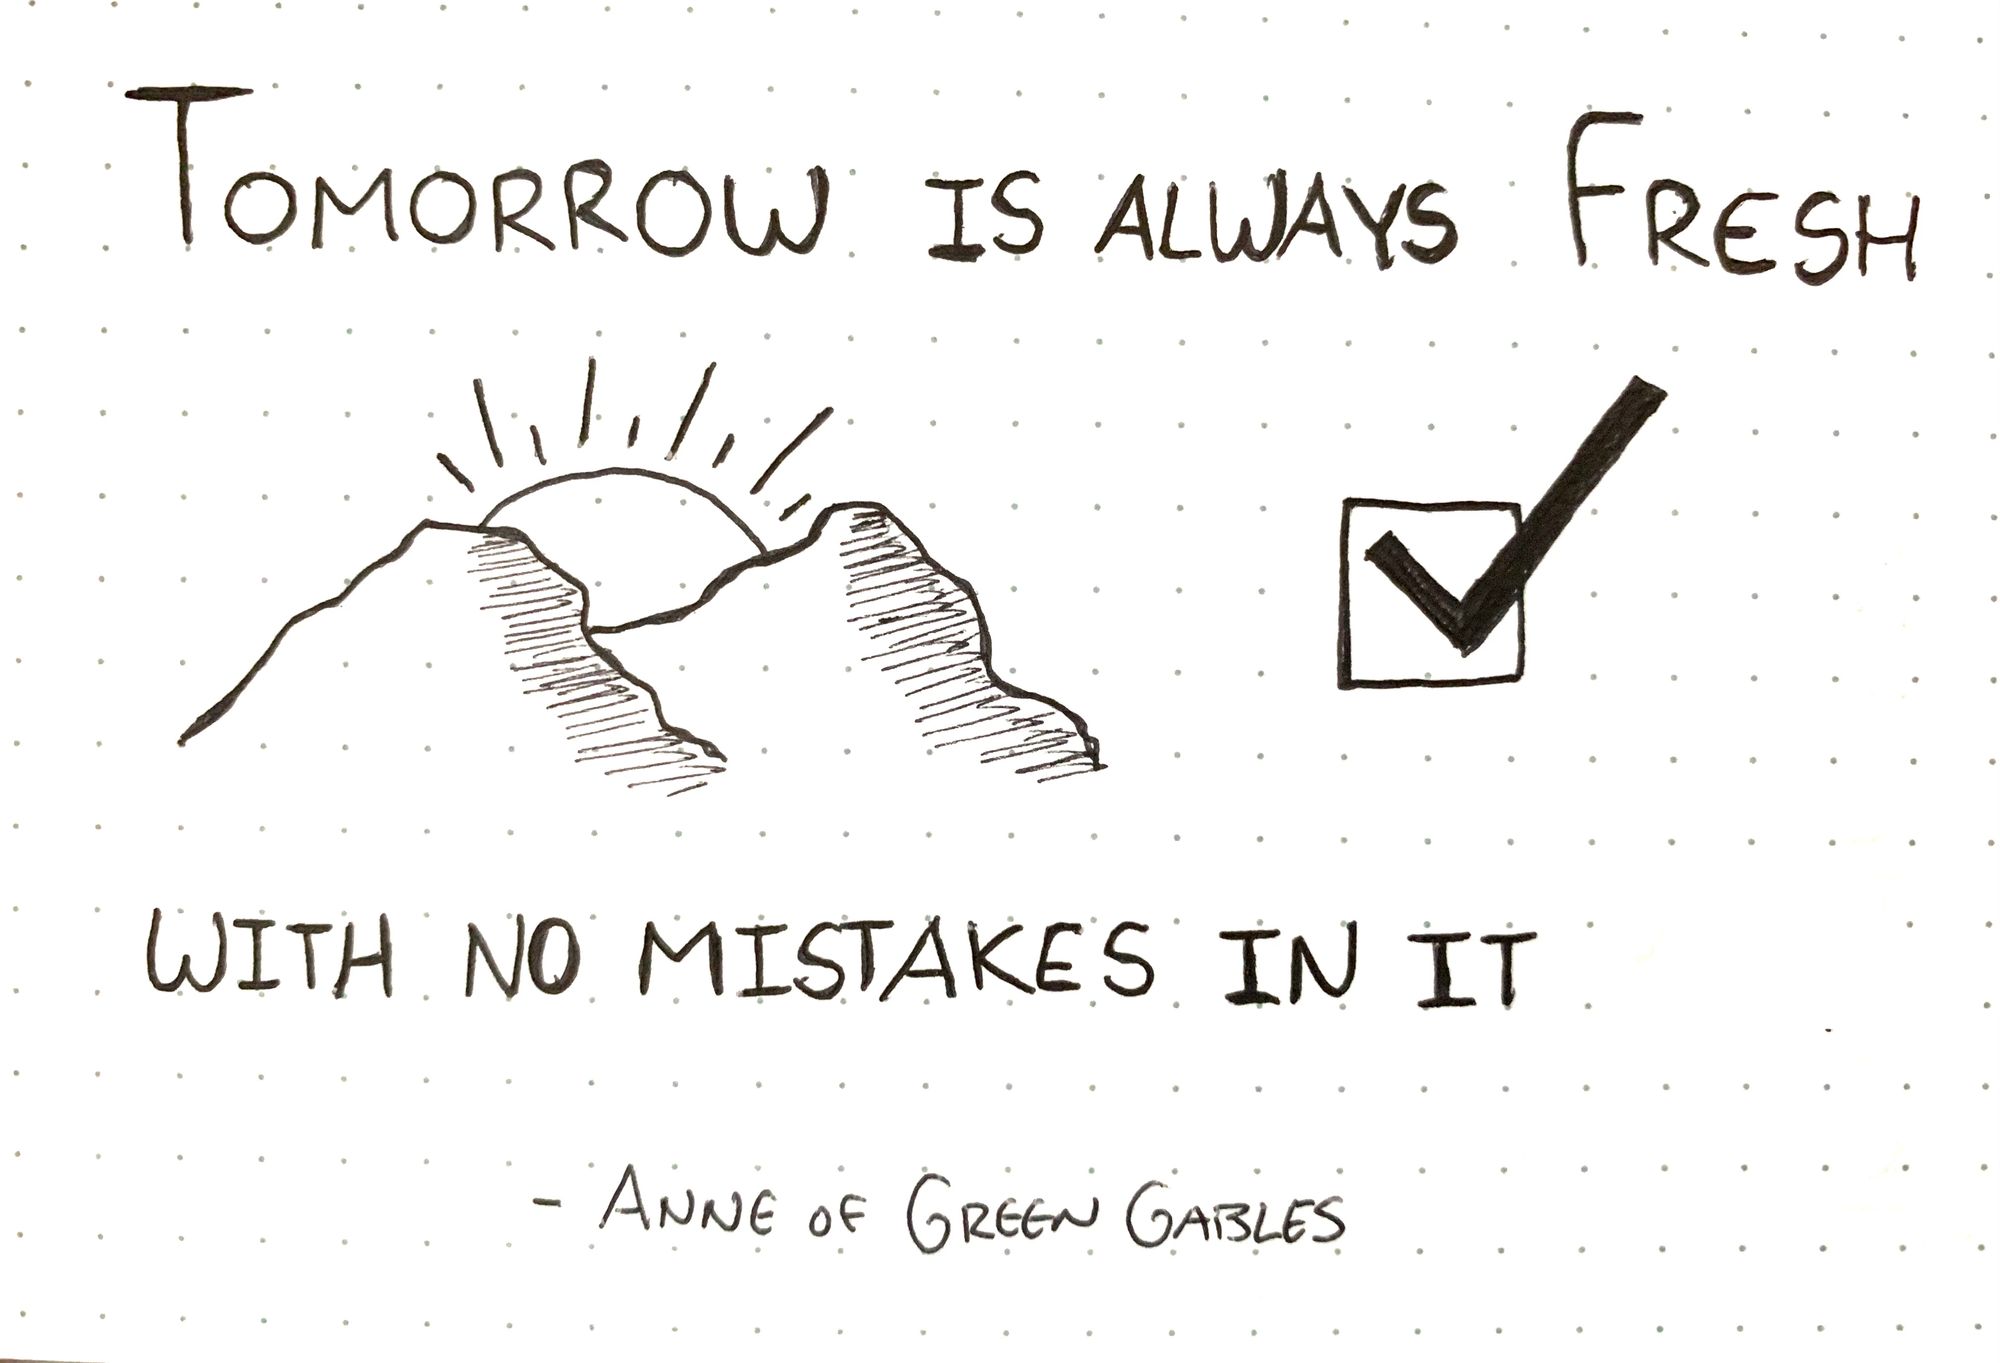 Tomorrow is always Fresh
with no mistakes in it
- Anne of Green Gables